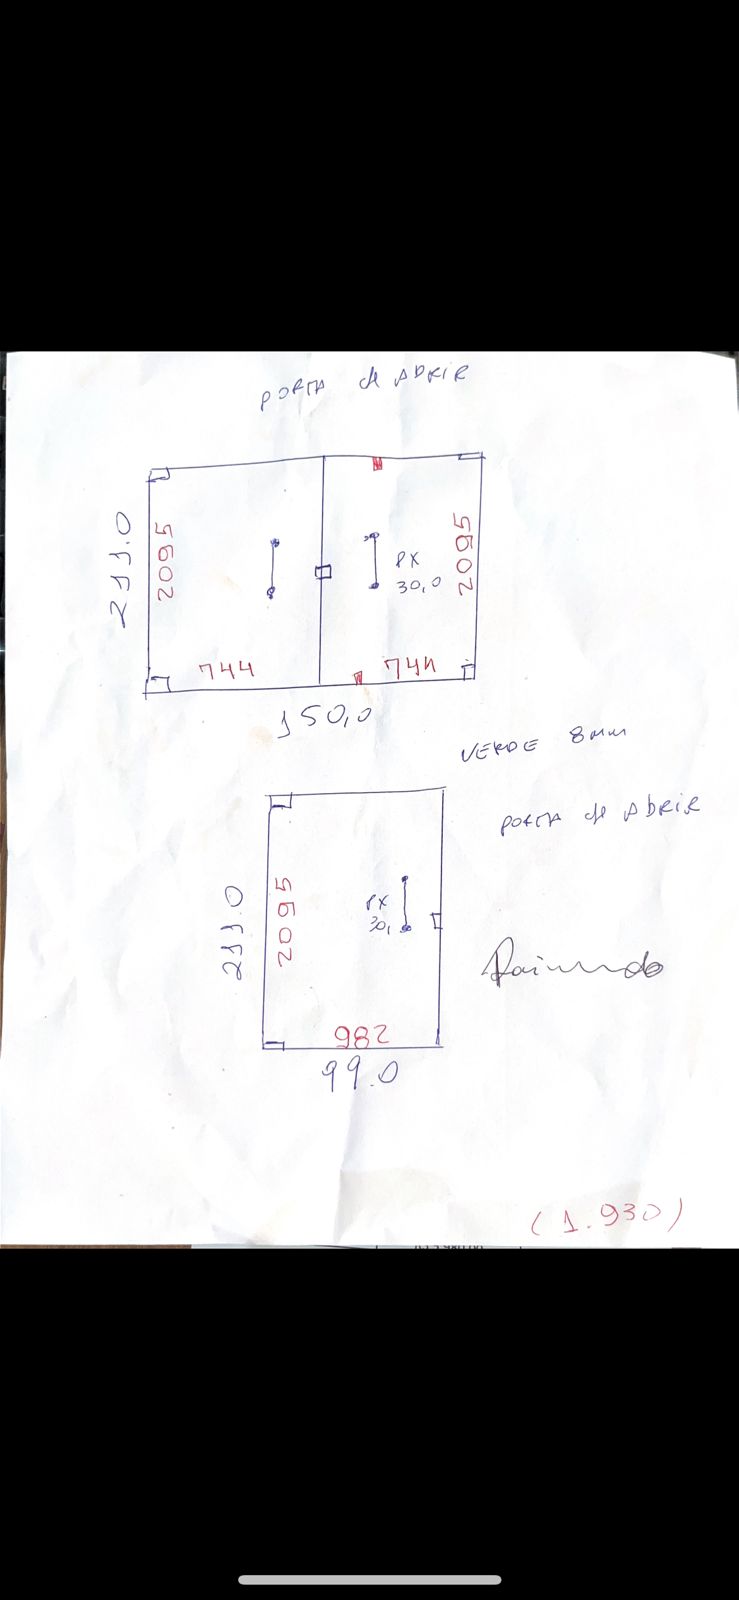 PORTA de ABRIR
211.0
2095
2095
PX
30,0
744
744
150,0
VERDE 8mm
PORTA de AbRIR
211.0
2095
PX
30,
Raimundo
982
99.0
(1.930)